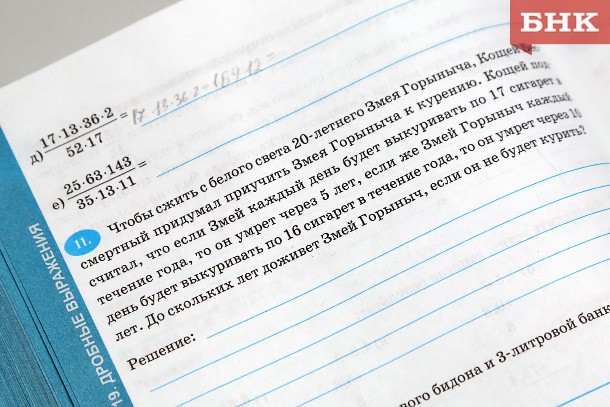 БНК
д) 17·13·36·2 / 52·17 = 17·13·36·2 =
е) 25·63·143 / 35·13·11 =
II. Чтобы сжить с белого света 20-летнего Змея Горыныча, Кощей Бес-
смертный придумал приучить Змея Горыныча к курению. Кощей под-
считал, что если Змей каждый день будет выкуривать по 17 сигарет в
течение года, то он умрет через 5 лет, если же Змей Горыныч каждый
день будет выкуривать по 16 сигарет в течение года, то он умрет через 10
лет. До скольких лет доживет Змей Горыныч, если он не будет курить?
Решение:
19. ДРОБНЫЕ ВЫРАЖЕНИЯ
бидона и 3-литровой